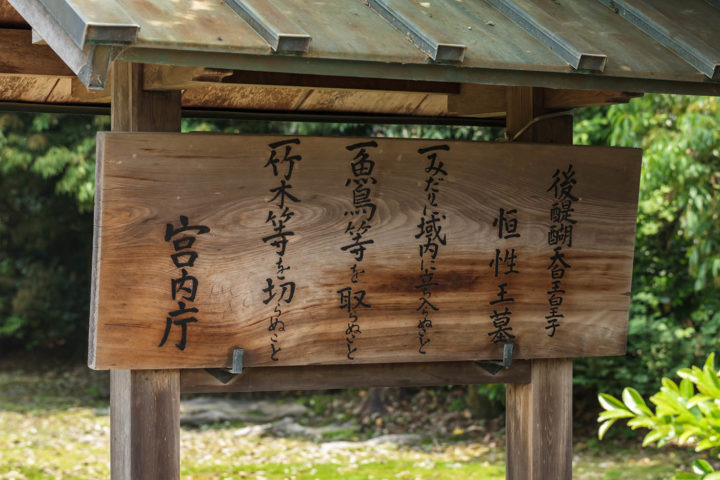 後醍醐天皇皇子
恒性王墓
一みだりに域内に立入らぬこと
一魚鳥等を取らぬこと
一竹木等を切らぬこと
宮内庁